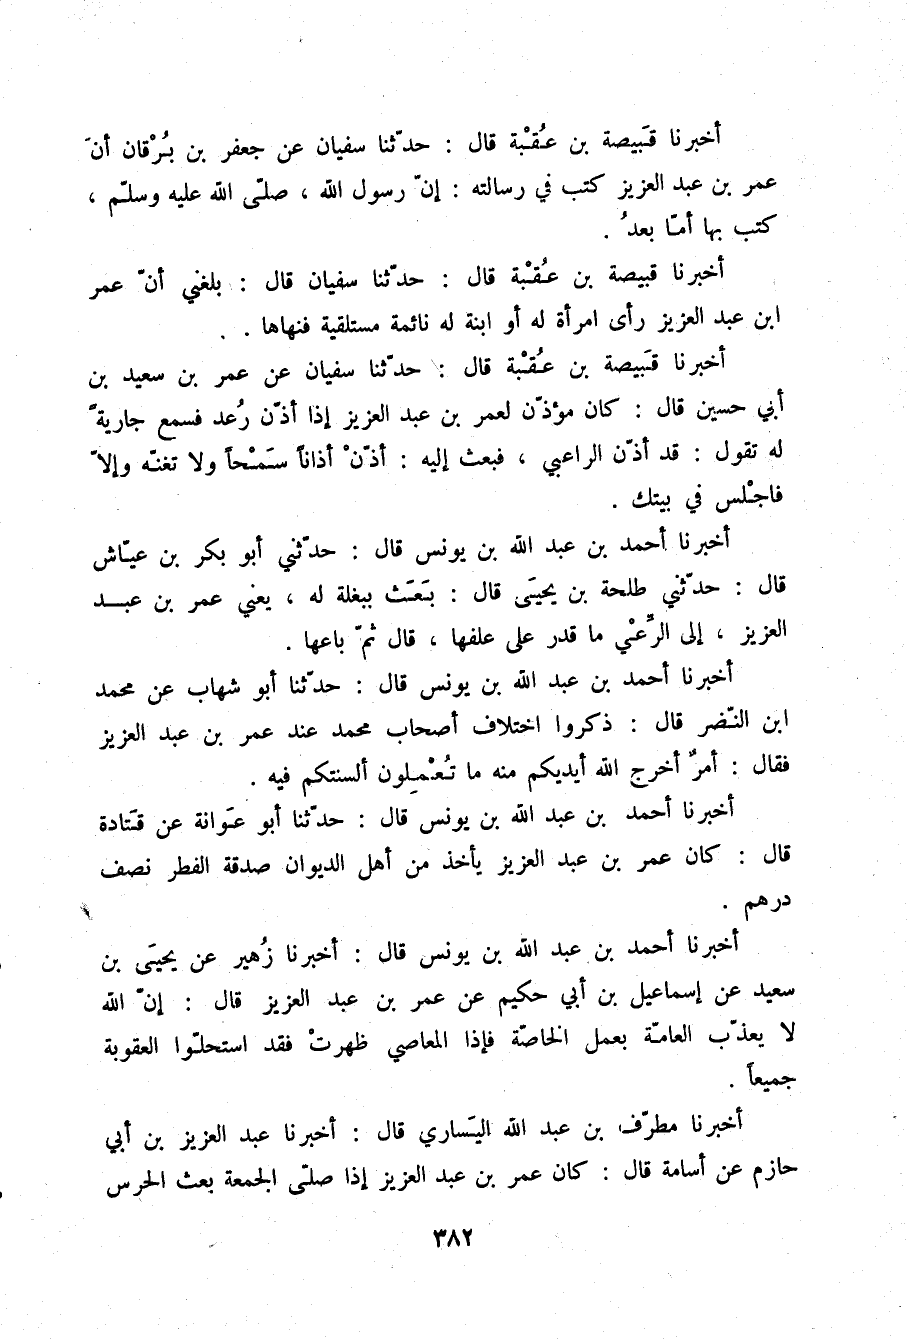 أخبرنا قَبيصة بن عُقْبة قال : حدّثنا سفيان عن جعفر بن بُرْقان أنّ
عمر بن عبد العزيز كتب في رسالته : إنّ رسول الله ، صلّى الله عليه وسلّم ،
كتب بها أمّا بعدُ .
أخبرنا قبيصة بن عُقْبة قال : حدّثنا سفيان قال : بلغني أنّ عمر
ابن عبد العزيز رأى امرأة له أو ابنة له نائمة مستلقية فنهاها .
أخبرنا قَبيصة بن عُقْبة قال : حدّثنا سفيان عن عمر بن سعيد بن
أبي حسين قال : كان مؤذّن لعمر بن عبد العزيز إذا أذّن رُعد فسمع جاريةً
له تقول : قد أذّن الراعبي ، فبعث إليه : أذّنْ أذاناً سَمْحاً ولا تغنّه وإلاّ
فاجْلس في بيتك .
أخبرنا أحمد بن عبد الله بن يونس قال : حدّثني أبو بكر بن عيّاش
قال : حدّثني طلحة بن يحيَى قال : بَعَث ببغلة له ، يعني عمر بن عبد
العزيز ، إلى الرّعْي ما قدر على علفها ، قال ثمّ باعها .
أخبرنا أحمد بن عبد الله بن يونس قال : حدّثنا أبو شهاب عن محمد
ابن النّضر قال : ذكروا اختلاف أصحاب محمد عند عمر بن عبد العزيز
فقال : أمرٌ أخرج الله أيديكم منه ما تُعْمِلون ألسنتكم فيه .
أخبرنا أحمد بن عبد الله بن يونس قال : حدّثنا أبو عَوانة عن قَتادة
قال : كان عمر بن عبد العزيز يأخذ من أهل الديوان صدقة الفطر نصف
درهم .
أخبرنا أحمد بن عبد الله بن يونس قال : أخبرنا زُهير عن يحيَى بن
سعيد عن إسماعيل بن أبي حكيم عن عمر بن عبد العزيز قال : إنّ الله
لا يعذّب العامّة بعمل الخاصّة فإذا المعاصي ظهرتْ فقد استحلّوا العقوبة
جميعاً .
أخبرنا مطرّف بن عبد الله اليَساري قال : أخبرنا عبد العزيز بن أبي
حازم عن أسامة قال : كان عمر بن عبد العزيز إذا صلّى الجمعة بعث الحرس
٣٨٢